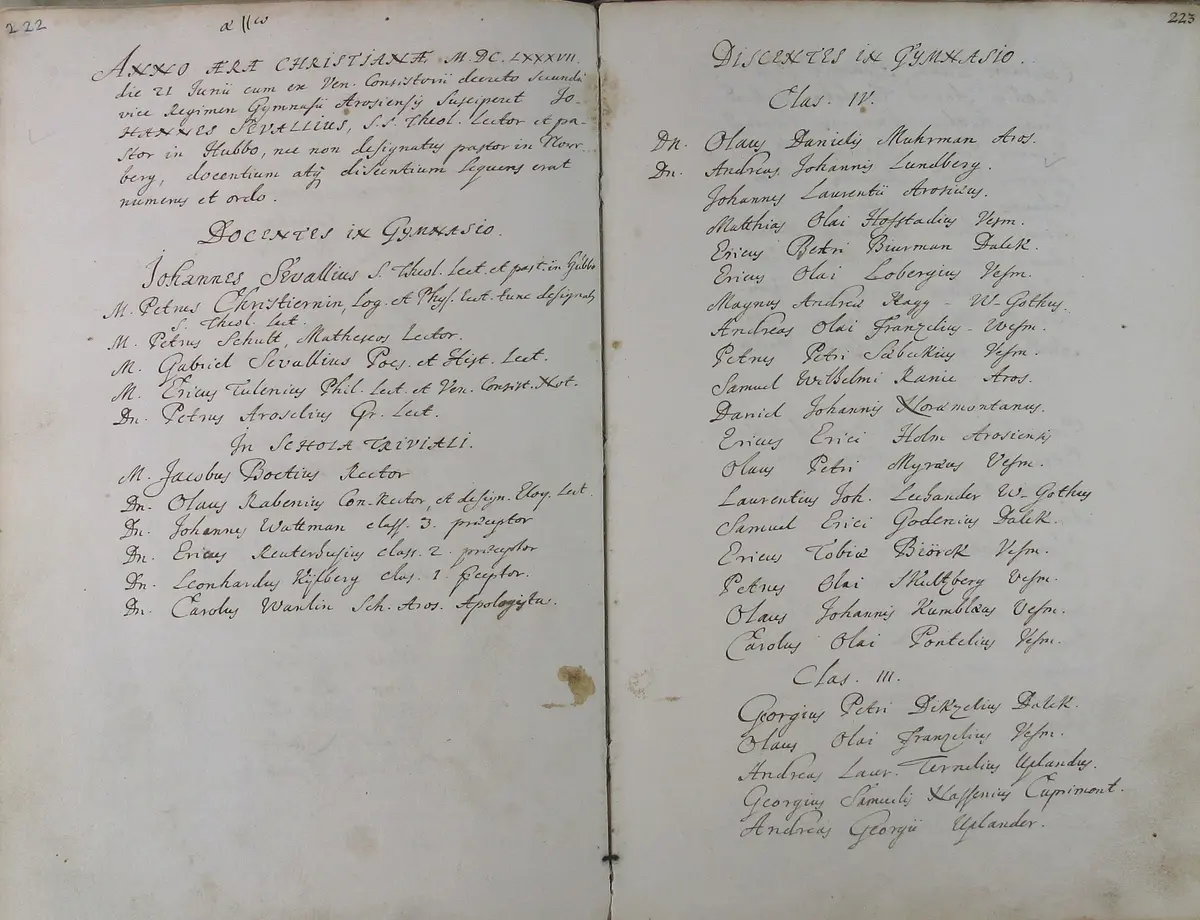 222
ANNO ÆRA CHRISTIANÆ M.DC.LXXXVII.
die 21 Junii cum ex Ven. Consistorii decreto secundâ
vice Regimen Gymnasii Arosiensis susciperet JO-
HANNES SEVALLIUS, S.S. Theol. Lector et pa-
stor in Hubbo, nec non designatus pastor in Norr-
berg, docentium atq discentium sequens erat
numerus et ordo.
DOCENTES IN GYMNASIO.
Johannes Sevallius S. Theol. Lect. et past. in Hubbo
M. Petrus Christiernin, Log. et Phys. Lect. tunc designatus
S. Theol. Lect.
M. Petrus Schult, Matheseos Lector.
M. Gabriel Sevallius Poes. et Hist. Lect.
M. Ericus Tulenius Phil. Lect. et Ven. Consist. Not.
Dn. Petrus Aroselius Gr. Lect.
In SCHOLA TRIVIALI.
M. Jacobus Boetius Rector
Dn. Olaus Rabenius Con-Rector, et design. Eloq. Lect.
Dn. Johannes Wattman class. 3. præceptor
Dn. Ericus Reuterhusius class. 2. præceptor
Dn. Leonhardus class. 1. pceptor.
Dn. Carolus Wanlin Sch. Aros. Apologista.
223
DISCENTES IN GYMNASIO.
Clas. IV.
Dn. Olaus Danielis Muhrman Aros.
Dn. Andreas Johannis Lundberg.
Johannes Laurentii Arosicus.
Matthias Olai Hofstadius Vesm.
Ericus Petri Biurman Dalek.
Ericus Olai Lobergius Vesm.
Magnus Andreæ Hagg - W-Gothus.
Andreas Olai Franzelius - Wesm.
Petrus Petri Sæbeckius Vesm.
Samuel Wilhelmi Ranie Aros.
Daniel Johannis Noræmontanus.
Ericus Erici Holm Arosiensis
Olaus Petri Myræus Vesm.
Laurentius Joh. Lechander W-Gothus
Samuel Erici Godenius Dalek.
Ericus Tobiæ Biörck Vesm.
Petrus Olai Skultzberg Vesm.
Olaus Johannis Kumblæus Vesm.
Carolus Olai Pontelius Vesm.
Clas. III.
Georgius Petri Dekzelius Dalek.
Olaus Olai Franzelius Vesm.
Andreas Laur. Ternelius Uplandus.
Georgius Samuelis Nassenius Cuprimont.
Andreas Georgii Uplander.